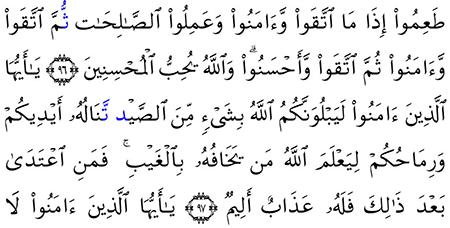 طَعِمُوا۟ إِذَا مَا ٱتَّقَوا۟ وَّءَامَنُوا۟ وَعَمِلُوا۟ ٱلصَّـٰلِحَـٰت ثُّمَّ ٱتَّقَوا۟
وَّءَامَنُوا۟ ثُمَّ ٱتَّقَوا۟ وَّأَحْسَنُوا۟ۗ وَٱللَّهُ يُحِبُّ ٱلْمُحْسِنِينَ ۝٩٦ يَـٰٓأَيُّهَا
ٱلَّذِينَ ءَامَنُوا۟ لَيَبْلُوَنَّكُمُ ٱللَّهُ بِشَىْءٍ مِّنَ ٱلصَّيْد تَّنَالُهُۥٓ أَيْدِيكُمْ
وَرِمَاحُكُمْ لِيَعْلَمَ ٱللَّهُ مَن يَخَافُهُۥ بِٱلْغَيْبِۚ فَمَنِ ٱعْتَدَىٰ
بَعْدَ ذَٰلِكَ فَلَهُۥ عَذَابٌ أَلِيمٌ ۝٩٧ يَـٰٓأَيُّهَا ٱلَّذِينَ ءَامَنُوا۟ لَا